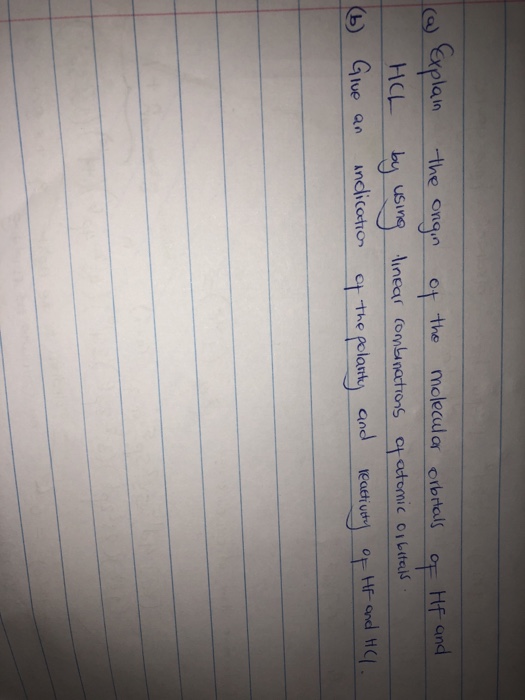 (a) Explain the origin of the molecular orbitals of HF and
HCL by using linear combinations of atomic orbitals.
(b) Give an indication of the polarity and reactivity of HF and HCl.